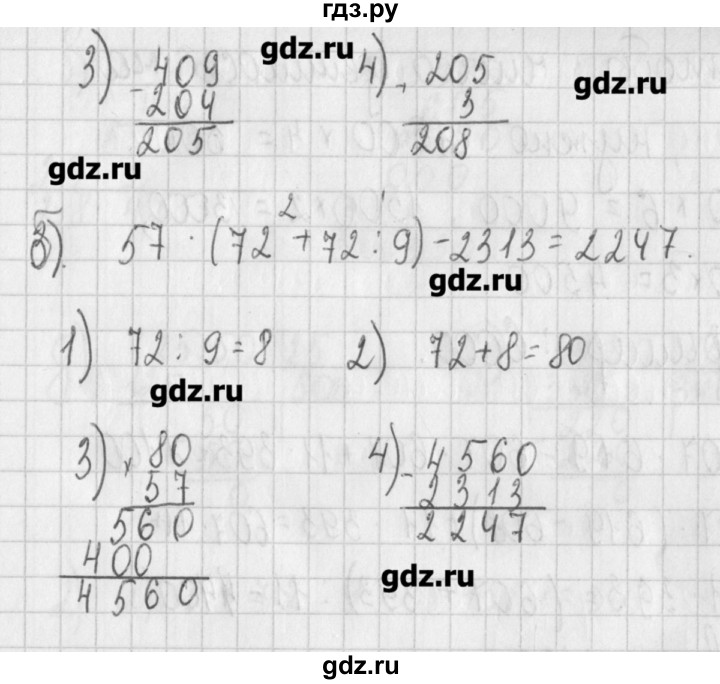 гдз.ру
3) - 409 4) + 205
204 3
205 208
б
3). 57 · (72 + 72 : 9) - 2313 = 2247.
2 1
1) 72 : 9 = 8 2) 72 + 8 = 80
3) × 80 4) - 4560
57 2313
560 2247
400
4560
gdz.ru
gdz.ru
gdz.ru
gdz.ru
gdz.ru
gdz.ru
gdz.ru